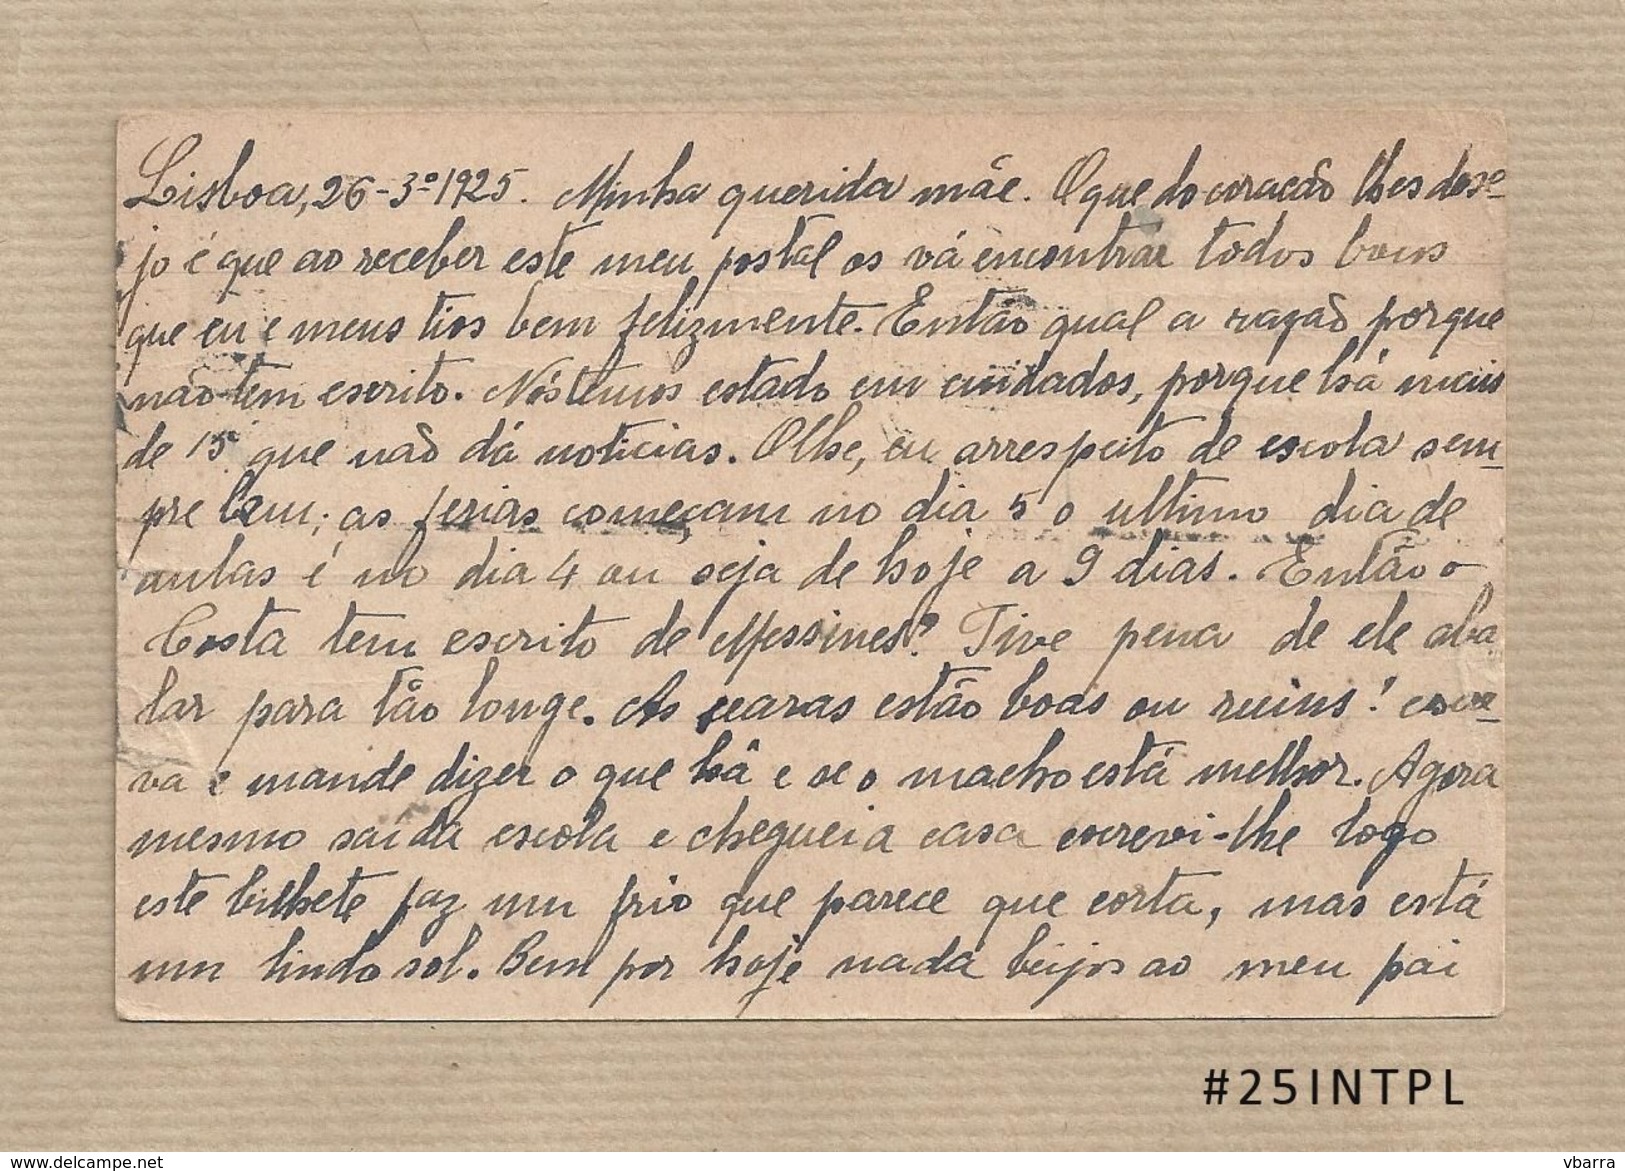 Lisboa, 26-3º-1925. Minha querida mãe. O que do coração lhes dese-
jo é que ao receber este meu postal os vá encontrar todos bons
que eu e meus tios bem felizmente. Então qual a razão porque
não tem escrito. Nós temos estado em cuidados, porque há mais
de 15 que não dá noticias. Olhe, eu arrespeito de escola sem-
pre bem; as ferias começam no dia 5 o ultimo dia de
aulas é no dia 4 ou seja de hoje a 9 dias. Então o
Costa tem escrito de Messines? Tive pena de ele aba
lar para tão longe. As searas estão boas ou ruins! escre-
va e mande dizer o que há e se o macho está melhor. Agora
mesmo saí da escola e cheguei a casa escrevi-lhe logo
este bilhete faz um frio que parece que corta, mas está
um lindo sol. Bem por hoje nada beijos ao meu pai
#25INTPL
www.delcampe.net
vbarra